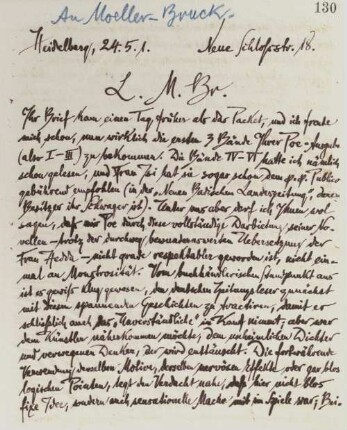 An Moeller-Bruck.
130
Heidelberg, 24.5.1. Neue Schloßstr. 18.
L. M. Br.
Ihr Brief kam einen Tag früher als das Packet, und ich freute
mich schon, nun wirklich die ersten 3 Bände Ihrer Poe-Ausgabe
(also I–III) zu bekommen. Die Bände IV–VI hatte ich nämlich
schon gelesen, und Frau Isi hat sie sogar schon dem p.p. Publico
gebührend empfohlen (in der "Neuen Badischen Landeszeitung", deren
Besitzer ihr Schwager ist). Unter uns aber darf ich Ihnen wol
sagen, daß mir Poe durch diese vollständige Darbietung seiner No-
vellen – trotz der durchweg bewundernswerten Uebersetzung der
Frau Hedda – nicht grade respektabler geworden ist, nicht ein-
mal an Monstrosität. Vom buchhändlerischen Standpunkt aus
ist es gewiß klug gewesen, den deutschen Zeitungsleser zunächst
mit diesen spannenden Geschichten zu tractiren, damit er
schließlich auch das "Unverständliche" in Kauf nimmt; aber wer
dem Künstler näherkommen möchte, dem unheimlichen Dichter
und verwegenen Denker, der wird enttäuscht. Die fortwährende
Verwendung derselben Motive, derselben nervösen Effekte oder gar blos
logischen Pointen, legt den Verdacht nahe, daß hier nicht blos
fixe Idee, sondern auch sensationelle Mache mit im Spiele war; Bei-